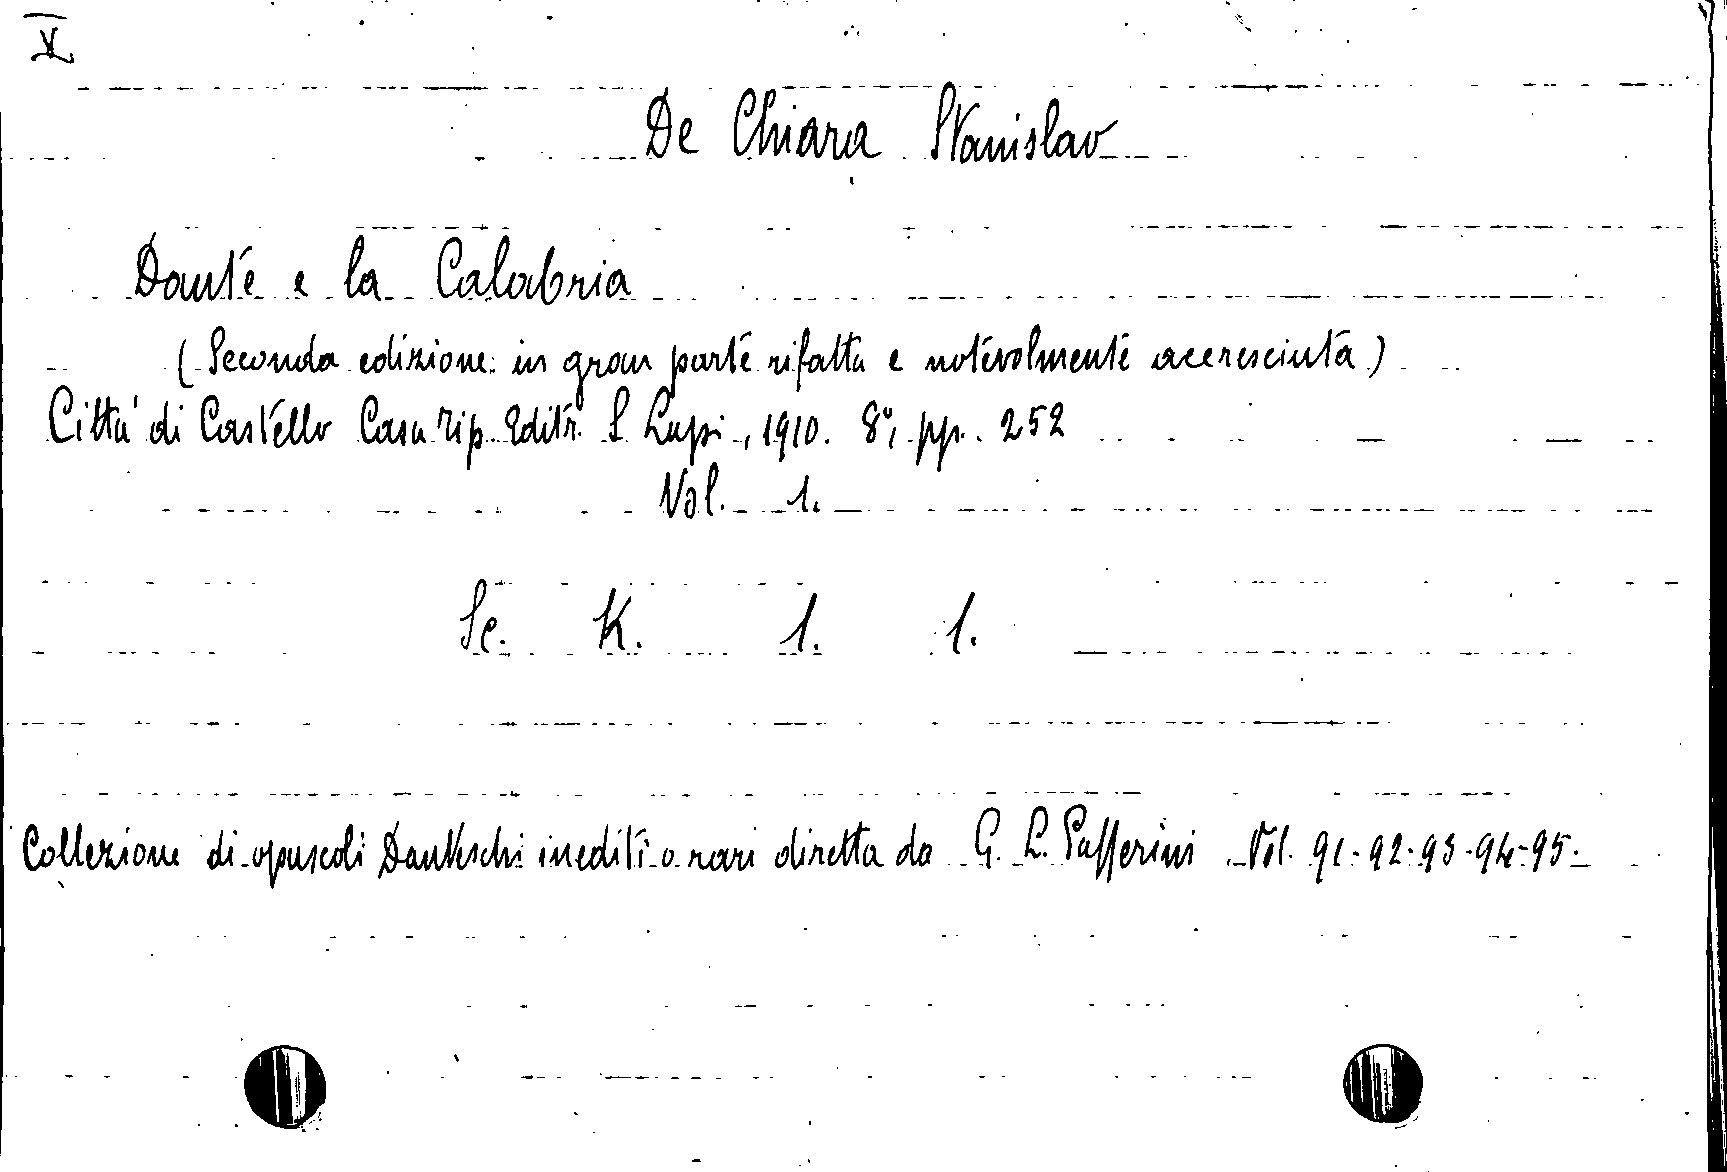 X
De Chiara Stanislao
Dante e la Calabria
(Seconda edizione in gran parte rifatta e notevolmente accresciuta)
Città di Castello Casa Tip. Editr. S Lapi, 1910. 8°, pp. 252
Vol. 1.
Sc. K. 1. 1.
Collezione di opuscoli Danteschi inediti o rari diretta da G. L. Passerini Vol. 91-92-93-94-95.